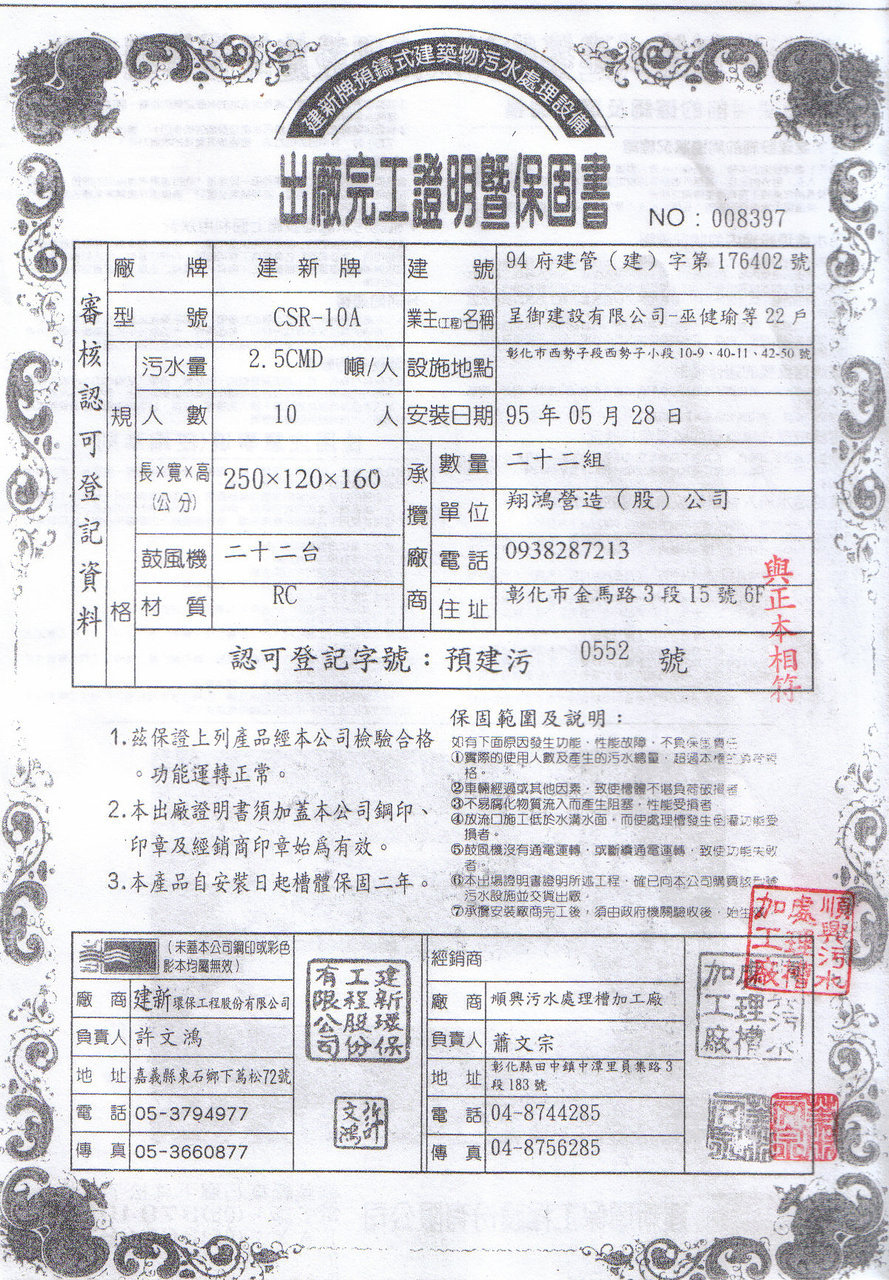 建新牌預鑄式建築物污水處理設備
出廠完工證明暨保固書
NO：008397
審核認可登記資料
廠牌 建新牌 建號 94府建管（建）字第176402號
型號 CSR-10A 業主(工程)名稱 呈御建設有限公司-巫健瑜等22戶
規格
污水量 2.5CMD 噸/人 設施地點 彰化市西勢子段西勢子小段10-9、40-11、42-50號
人數 10 人 安裝日期 95年05月28日
長×寬×高(公分) 250×120×160
鼓風機 二十二台
材質 RC
承攬廠商
數量 二十二組
單位 翔鴻營造（股）公司
電話 0938287213
住址 彰化市金馬路3段15號6F
與正本相符
認可登記字號：預建污 0552 號
1.茲保證上列產品經本公司檢驗合格
。功能運轉正常。
2.本出廠證明書須加蓋本公司鋼印、
印章及經銷商印章始為有效。
3.本產品自安裝日起槽體保固二年。
保固範圍及說明：
如有下面原因發生功能，性能故障，不負保固責任
①實際的使用人數及產生的污水總量，超過本槽的負荷規
格。
②車輛經過或其他因素，致使槽體不堪負荷破損者
③不易腐化物質流入而產生阻塞，性能受損者
④放流口施工低於水溝水面，而使處理槽發生倒灌功能受
損者。
⑤鼓風機沒有通電運轉，或斷續通電運轉，致使功能失敗
者
⑥本出場證明書證明所述工程，確已向本公司購買該型號
污水設施並交貨出廠。
⑦承攬安裝廠商完工後，須由政府機關驗收後，始生
（未蓋本公司鋼印或彩色
影本均屬無效）
廠商 建新環保工程股份有限公司
負責人 許文鴻
地址 嘉義縣東石鄉下蔦松72號
電話 05-3794977
傳真 05-3660877
建新環保工程股份有限公司
許文鴻
經銷商
廠商 順興污水處理槽加工廠
負責人 蕭文宗
地址 彰化縣田中鎮中潭里員集路3
段183號
電話 04-8744285
傳真 04-8756285
順興污水處理槽加工廠